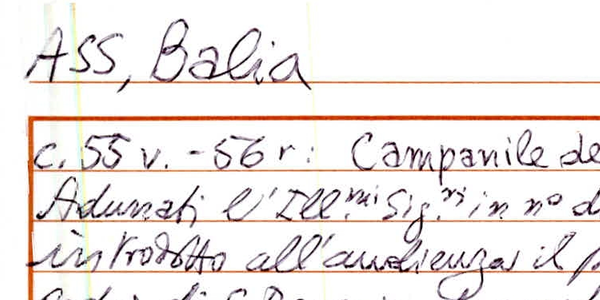 ASS, Balia
c. 55 v. - 56 r: Campanile de
Adunati l'Ill.mi Sig.ri in n° d
introdotto all'audienza il